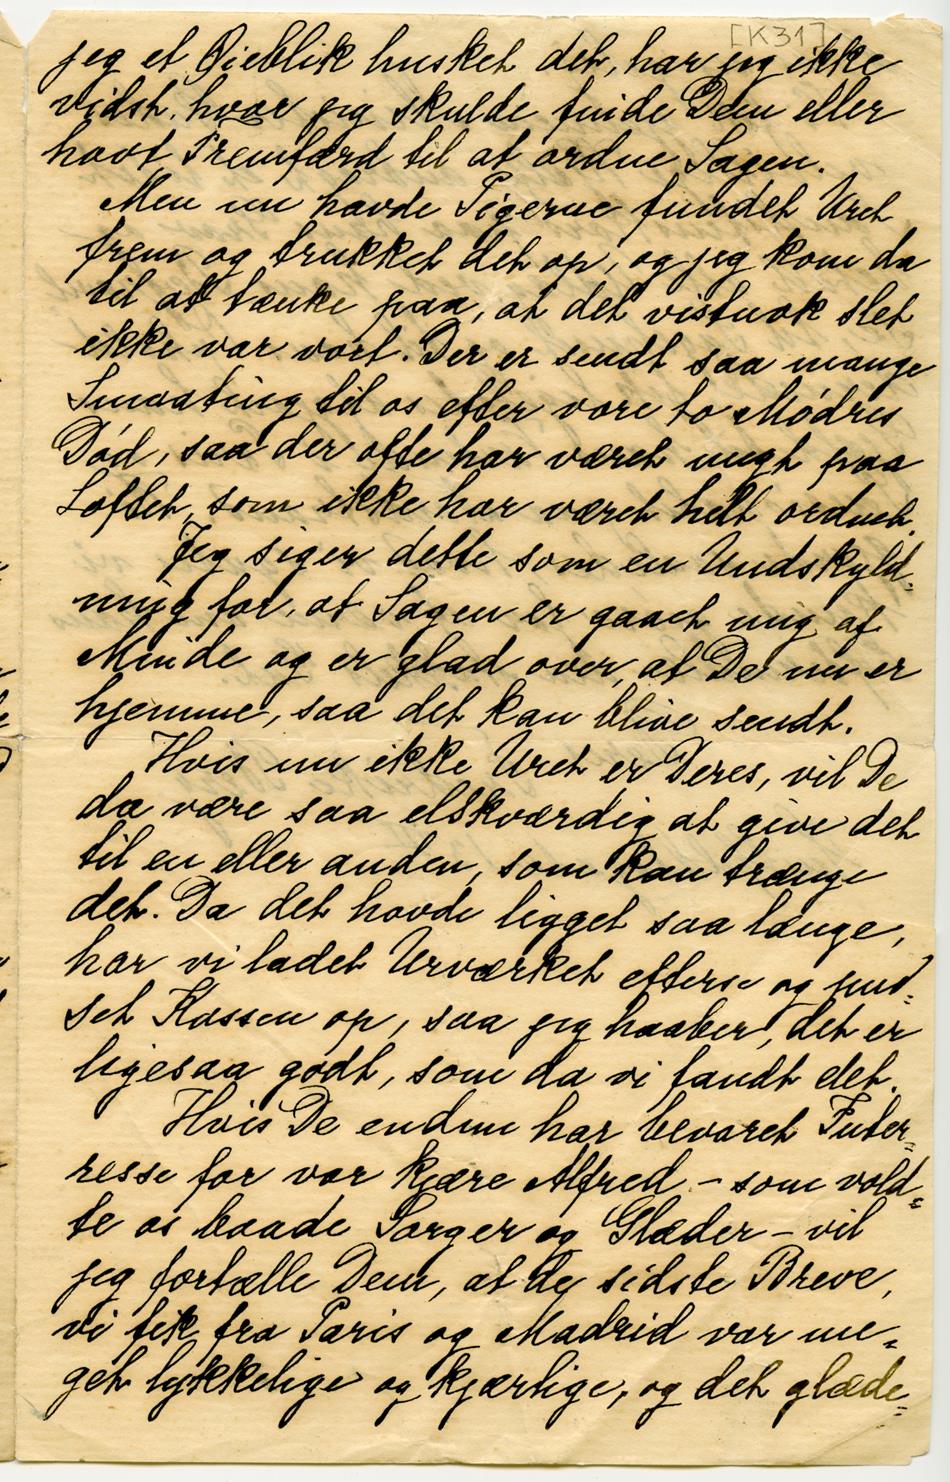 [K31]
jeg et Øieblik husket det, har jeg ikke
vidst, hvor jeg skulde finde Dem eller
havt Fremfærd til at ordne Sagen.
Men nu havde Pigerne fundet Uret
frem og trukket det op, og jeg kom da
til at tænke paa, at det vistnok slet
ikke var vort. Der er sendt saa mange
Smaating til os efter vore to Mødres
Død, saa der ofte har været meget paa
Loftet, som ikke har været helt ordnet.
Jeg siger dette som en Undskyld-
ning for, at Sagen er gaaet mig af
Minde og er glad over, at De nu er
hjemme, saa det kan blive sendt.
Hvis nu ikke Uret er Deres, vil De
da være saa elskværdig at give det
til en eller anden, som kan trænge
det. Da det havde ligget saa længe,
har vi ladet Urværket efterse og pud-
set Kassen op, saa jeg haaber, det er
ligesaa godt, som da vi fandt det.
Hvis De endnu har bevaret Inter-
resse for vor kjære Alfred – som vold-
te os baade Sorger og Glæder – vil
jeg fortælle Dem, at de sidste Breve,
vi fik fra Paris og Madrid var me-
get lykkelige og kjærlige, og det glæde-